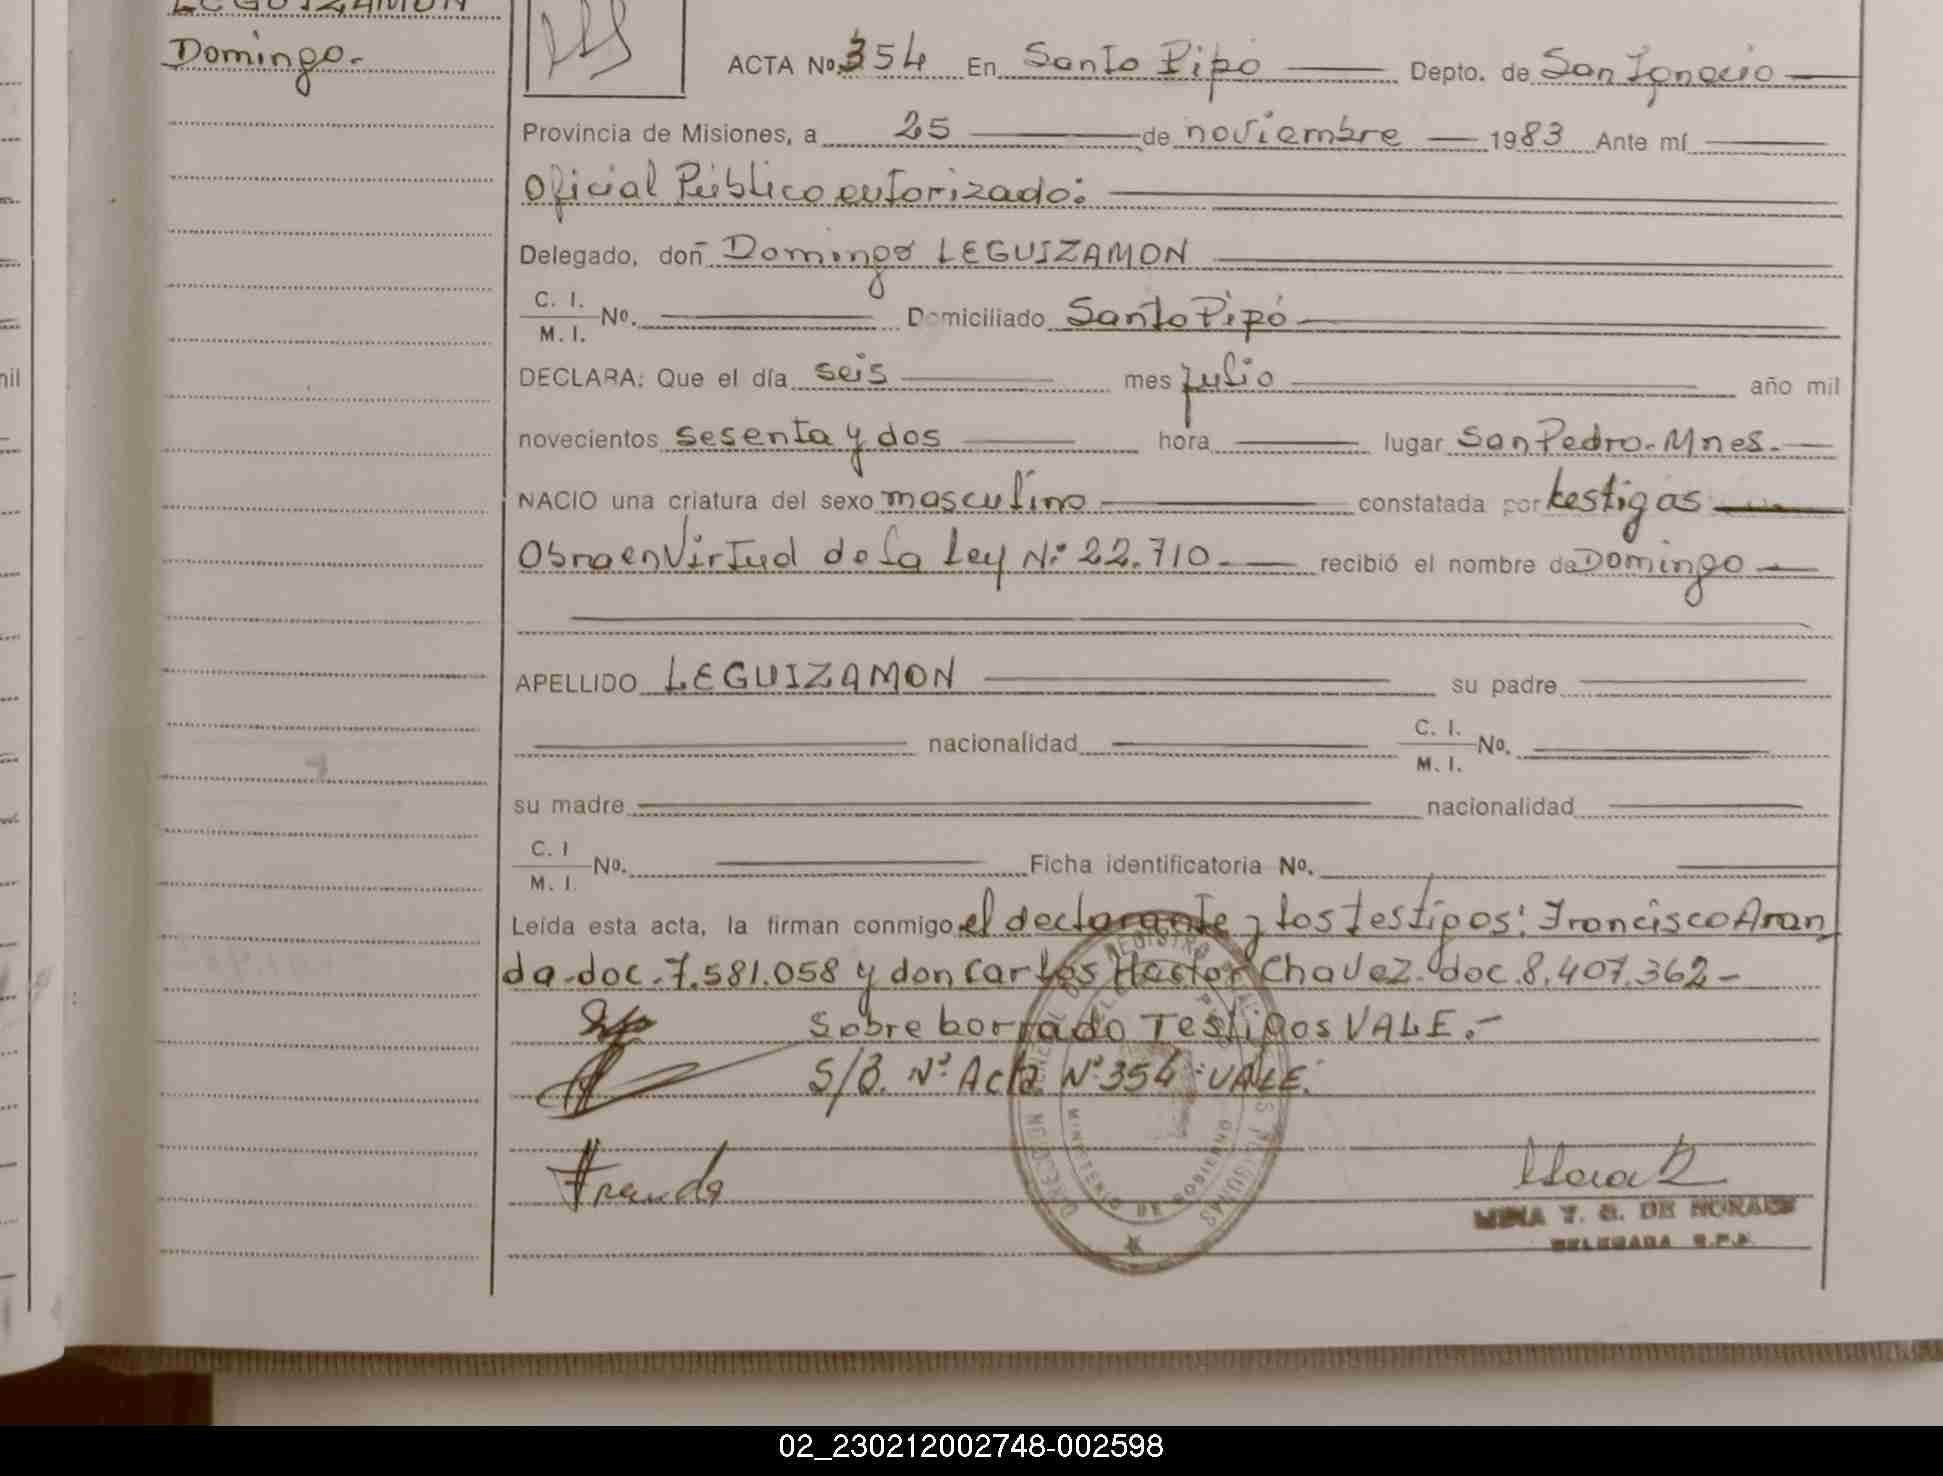 LEGUIZAMON
Domingo.
ACTA No. 354 En Santo Pipó Depto. de San Ignacio
Provincia de Misiones, a 25 de noviembre 1983 Ante mí
Oficial Público autorizado:
Delegado, don Domingo LEGUIZAMON
C. I.
M. I. No. Domiciliado Santo Pipó
DECLARA: Que el día seis mes julio año mil
novecientos sesenta y dos hora lugar San Pedro-Mnes.
NACIO una criatura del sexo masculino constatada por testigos
Obra en Virtud de la Ley N° 22.710- recibió el nombre de Domingo
APELLIDO LEGUIZAMON su padre
nacionalidad C. I.
M. I. No.
su madre nacionalidad
C. I
M. I. No. Ficha identificatoria No.
Leída esta acta, la firman conmigo el declarante y los testigos: Francisco Aran
da-doc.7.581.058 y don Carlos Hector Chavez. doc.8.407.362-
Sobre borrado Testigos VALE.-
S/B. N° Acta N° 354 VALE.
MINISTERIO DE GOBIERNO
DE MORAES
DELEGADA R.P.P.
nil
02_230212002748-002598